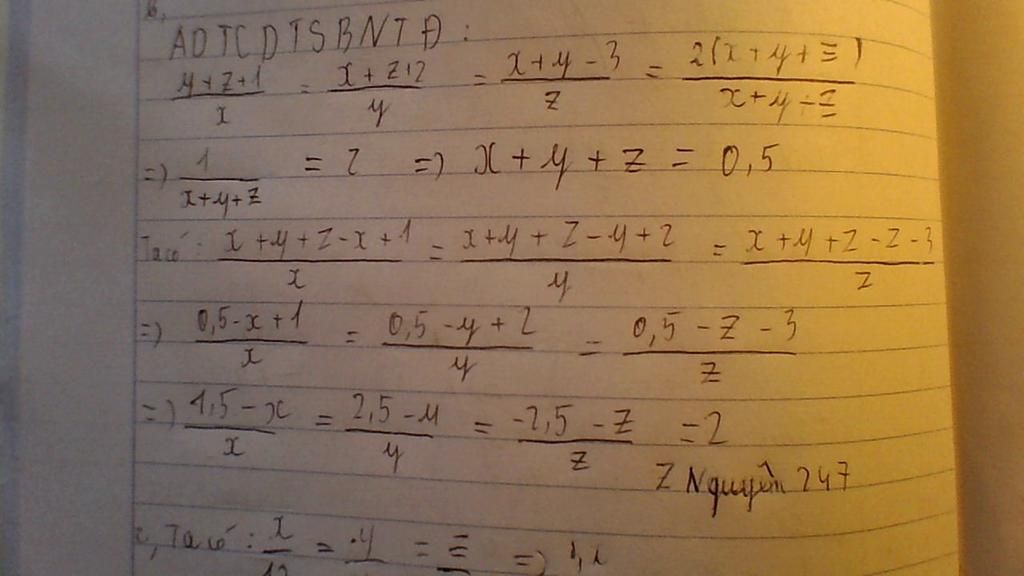 b,
ADTCDTSBNTĐ :
y+z+1/x = x+z+2/y = x+y-3/z = 2(x+y+z)/x+y+z
=> 1/x+y+z = 2 => x+y+z = 0,5
Ta có: x+y+z-x+1/x = x+y+z-y+2/y = x+y+z-z-3/z
=> 0,5-x+1/x = 0,5-y+2/y = 0,5-z-3/z
=> 1,5-x/x = 2,5-y/y = -2,5-z/z = 2
Z Nguyễn 247
c, Ta có: x/ = y/ = z/ =>